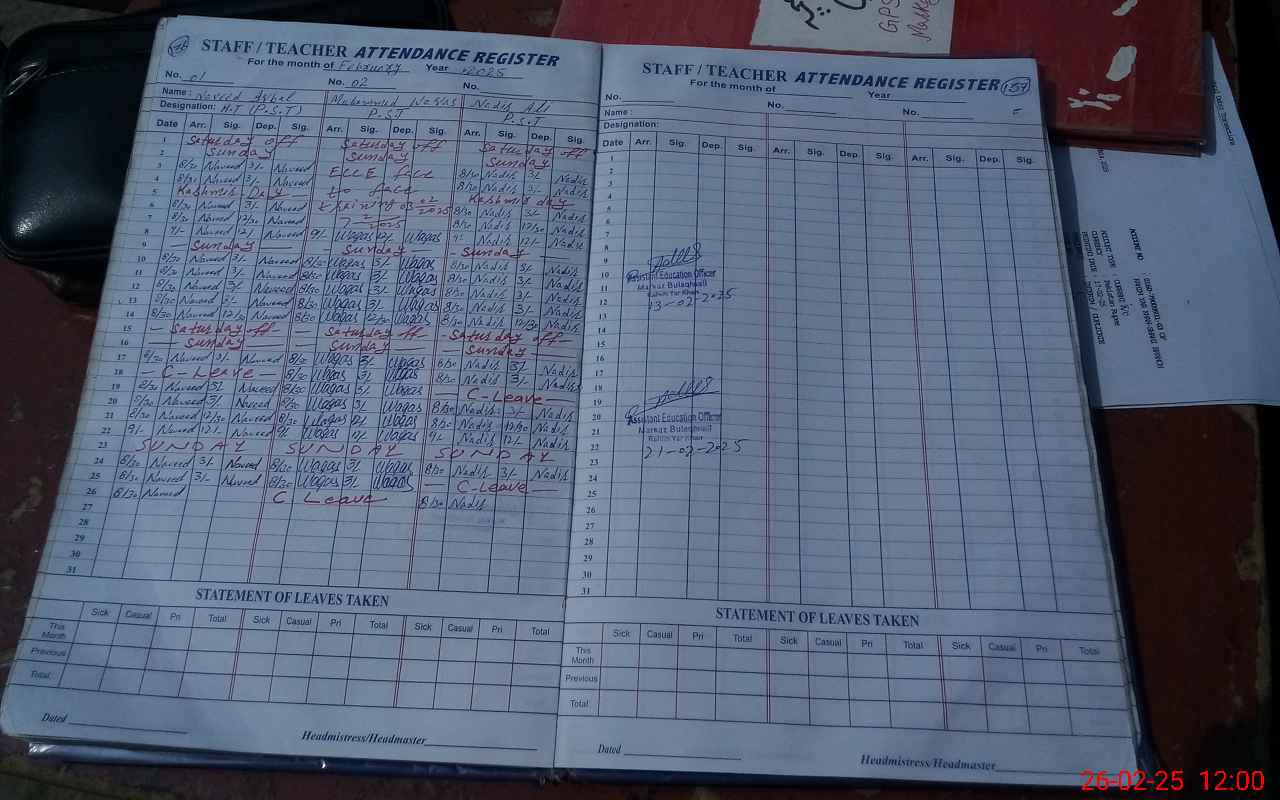 STAFF / TEACHER ATTENDANCE REGISTER
For the month of February Year 2025
No. 01 No. 02 No.
Name: Naveed Muhammad Waqas Nadir Ali
Designation: H.T (P.S.T) P.S.T P.S.T
Date Arr. Sig. Dep. Sig. Arr. Sig. Dep. Sig. Arr. Sig. Dep. Sig.
1 Saturday off Saturday off Saturday off
2 Sunday Sunday Sunday
3 8/30 Naveed 3/- Naveed ECCE 8/30 Nadir 3/- Nadir
4 8/30 Naveed 3/- Naveed to 8/30 Nadir 3/- Nadir
5 Kashmir Day training 03 02 2025 Kashmir day
6 8/30 Naveed 3/- Naveed 8/30 Nadir 3/- Nadir
7 8/30 Naveed 12/30 Naveed 7 2 2025 8/30 Nadir 12/30 Nadir
8 9/- Naveed 12/- Naveed 9/- Waqas 12/- Waqas 9/- Nadir 12/- Nadir
9 — Sunday — Sunday - Sunday -
10 8/30 Naveed 3/- Naveed 8/30 Waqas 3/- Waqas 8/30 Nadir 3/- Nadir
11 8/30 Naveed 3/- Naveed 8/30 Waqas 3/- Waqas 8/30 Nadir 3/- Nadir
12 8/30 Naveed 3/- Naveed 8/30 Waqas 3/- Waqas 8/30 Nadir 3/- Nadir
13 8/30 Naveed 3/- Naveed 8/30 Waqas 3/- Waqas 8/30 Nadir 3/- Nadir
14 8/30 Naveed 12/30 Naveed 8/30 Waqas 12/30 Waqas 8/30 Nadir 12/30 Nadir
15 — Saturday off — Saturday off — Saturday off —
16 — Sunday — Sunday — Sunday —
17 8/30 Naveed 3/- Naveed 8/30 Waqas 3/- Waqas 8/30 Nadir 3/- Nadir
18 — C-Leave — 8/30 Waqas 3/- Waqas 8/30 Nadir 3/- Nadir
19 8/30 Naveed 3/- Naveed 8/30 Waqas 3/- Waqas — C-Leave —
20 8/30 Naveed 3/- Naveed 8/30 Waqas 3/- Waqas 8/30 Nadir 3/- Nadir
21 8/30 Naveed 12/30 Naveed 8/30 Waqas 12/- Waqas 8/30 Nadir 12/30 Nadir
22 9/- Naveed 12/- Naveed 9/- Waqas 12/- Waqas 9/- Nadir 12/- Nadir
23 SUNDAY SUNDAY SUNDAY
24 8/30 Naveed 3/- Naveed 8/30 Waqas 3/- Waqas 8/30 Nadir 3/- Nadir
25 8/30 Naveed 3/- Naveed 8/30 Waqas 3/- Waqas — C-Leave —
26 8/30 Naveed C Leave 8/30 Nadir
27
28
29
30
31
STATEMENT OF LEAVES TAKEN
Sick Casual Pri Total Sick Casual Pri Total Sick Casual Pri Total
This Month
Previous
Total
Dated
Headmistress/Headmaster
STAFF / TEACHER ATTENDANCE REGISTER 157
For the month of Year
No. No. No.
Name:
Designation:
Date Arr. Sig. Dep. Sig. Arr. Sig. Dep. Sig. Arr. Sig. Dep. Sig.
1
2
3
4
5
6
7
8
9
10
11
12
13
14
15
16
17
18
19
20
21
22
23
24
25
26
27
28
29
30
31
Assistant Education Officer
Markaz Bulaghwali
Rahim Yar Khan
13-02-2025
Assistant Education Officer
Markaz Bulaghwali
Rahim Yar Khan
21-02-2025
STATEMENT OF LEAVES TAKEN
Sick Casual Pri Total Sick Casual Pri Total Sick Casual Pri Total
This Month
Previous
Total
Dated
Headmistress/Headmaster
GPS
26-02-25 12:00